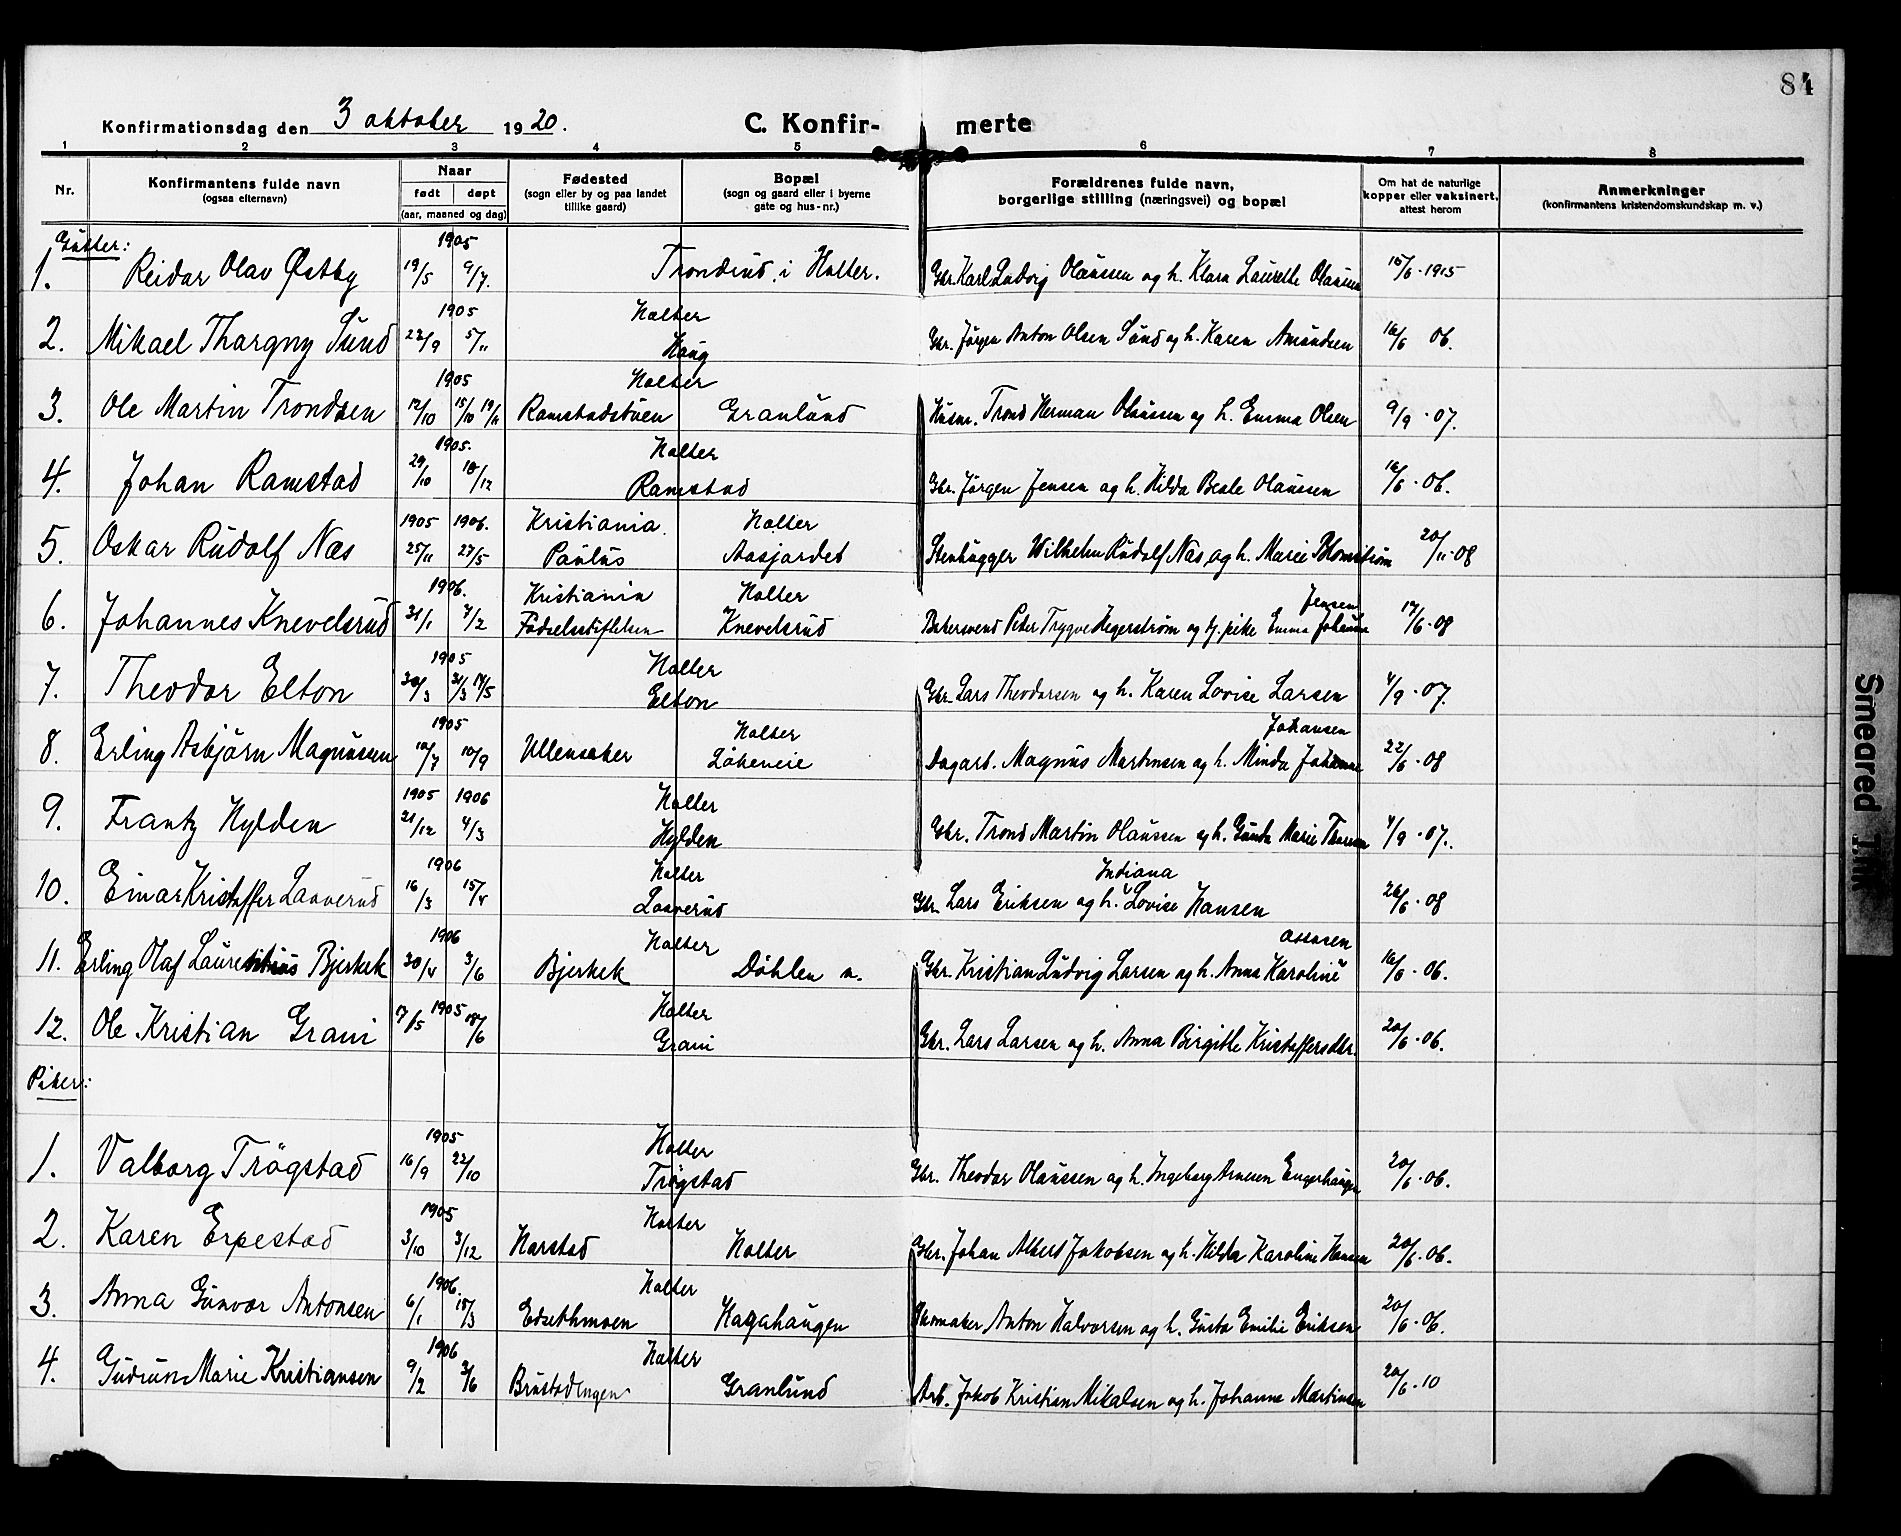 84
Konfirmationsdag den 3 oktober 1920.
C. Konfir- merte
1 2 3 4 5 6 7 8
Nr.
Konfirmantens fulde navn
(ogsaa efternavn)
Naar
født døpt
(aar, maaned og dag)
Fødested
(sogn eller by og paa landet
tillike gaard)
Bopæl
(sogn og gaard eller i byerne
gate og hus-nr.)
Forældrenes fulde navn,
borgerlige stilling (næringsvei) og bopæl
Om hat de naturlige
kopper eller vaksinert,
attest herom
Anmerkninger
(konfirmantens kristendomskundskap m. v.)
Gutter:
1905
1. Reidar Olav Østby 19/5 9/7. Trondrud i Holter. Gbr. Karl Ludvig Olaussen og h. Klara Laurette Olaussen 16/6 · 1915
1905 Holter
2. Mikael Thargny Sund 22/9 5/11 Haug Gbr. Jørgen Anton Olsen Sund og h. Karen Amundsen 16/6 06.
1905 Holter
3. Ole Martin Trondsen 12/10 15/10 19/11 Ramstadstuen Granlund Husm. Trond Herman Olaussen og h. Emma Olsen 9/9 · 07.
1905. Holter
4. Johan Ramstad 29/10 10/12 Ramstad Gbr. Jørgen Jensen og h. Hilda Beate Olaussen 16/6 · 06.
1905 1906. Kristiania Holter
5. Oskar Rudolf Næs 25/11 27/5 Paulus Aasjordet Stenhugger Wilhelm Rudolf Næs og h. Marie Blomstrøm 20/11 · 08
1906. Kristiania Holter Jensen
6. Johannes Knevelsrud 31/1 7/2 Fødselsstiftelsen Knevelsrud Bakersvend Peter Trygve Hegerstrøm og tj. pike Emma Johanne 17/6 · 08
1905 Holter
7. Theodor Elton 30/3 31/3 14/5 Elton Gbr. Lars Theodorsen og h. Karen Lovise Larsen 4/9 · 07.
1905 Holter Johansen
8. Erling Asbjørn Magnussen 10/7 10/9 Ullensaker Løkeneie Dagarb. Magnus Martinsen og h. Minda Johanne 22/6 · 08
1905 1906 Holter
9. Frantz Hylden 21/12 4/3 Hylden Gbr. Trond Martin Olaussen og h. Gunda Marie Thoresen 4/9 · 07.
1906 Holter Indiana
10. Einar Kristoffer Laaverud 16/3 15/4 Laaverud Gbr. Lars Eriksen og h. Lovise Hansen 26/6 · 08
1906 Holter Ottosen
11. Erling Olaf Laurentius Bjerkek 30/4 3/6 Bjerkek Døhlen n. Gbr. Kristian Ludvig Larsen og h. Anna Karoline 16/6 · 06.
1905 Holter
12. Ole Kristian Grani 17/5 18/6 Grani Gbr. Lars Larsen og h. Anna Birgitte Kristoffersdtr. 20/6 · 06.
Piker:
1905 Holter
1. Valborg Trøgstad 16/9 22/10 Trøgstad Gbr. Theodor Olaussen og h. Ingeborg Arnesen Engerhaugen 20/6 · 06.
1905 Holter
2. Karen Erpestad 3/10 3/12 Harstad Holter Gbr. Johan Albert Jakobsen og h. Hilda Karoline Hansen 20/6 · 06.
1906. Holter
3. Anna Gunvor Antonsen 6/1 18/3 Edsethmoen Hagahaugen Skomaker Anton Halvorsen og h. Gusta Emilie Eriksen 20/6 · 06.
1906 Holter
4. Gudrun Marie Kristiansen 9/2 3/6 Brustadengen Granlund Arb. Jakob Kristian Mikalsen og h. Johanne Martinsen 20/6 · 10
Smeared Ink